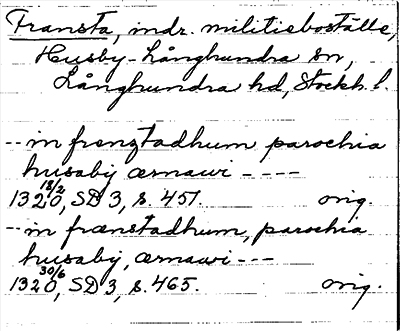 Fransta, indr. militieboställe,
Husby-Långhundra sn,
Långhundra hd, Stockh. l.
-- in frenztadhum parochia
husaby ærnawi ----
1320 18/2, SD 3, s. 451. orig.
-- in frænstadhum, parochia
husaby, ærnawi ---
1320 30/6, SD 3, s. 465. orig.